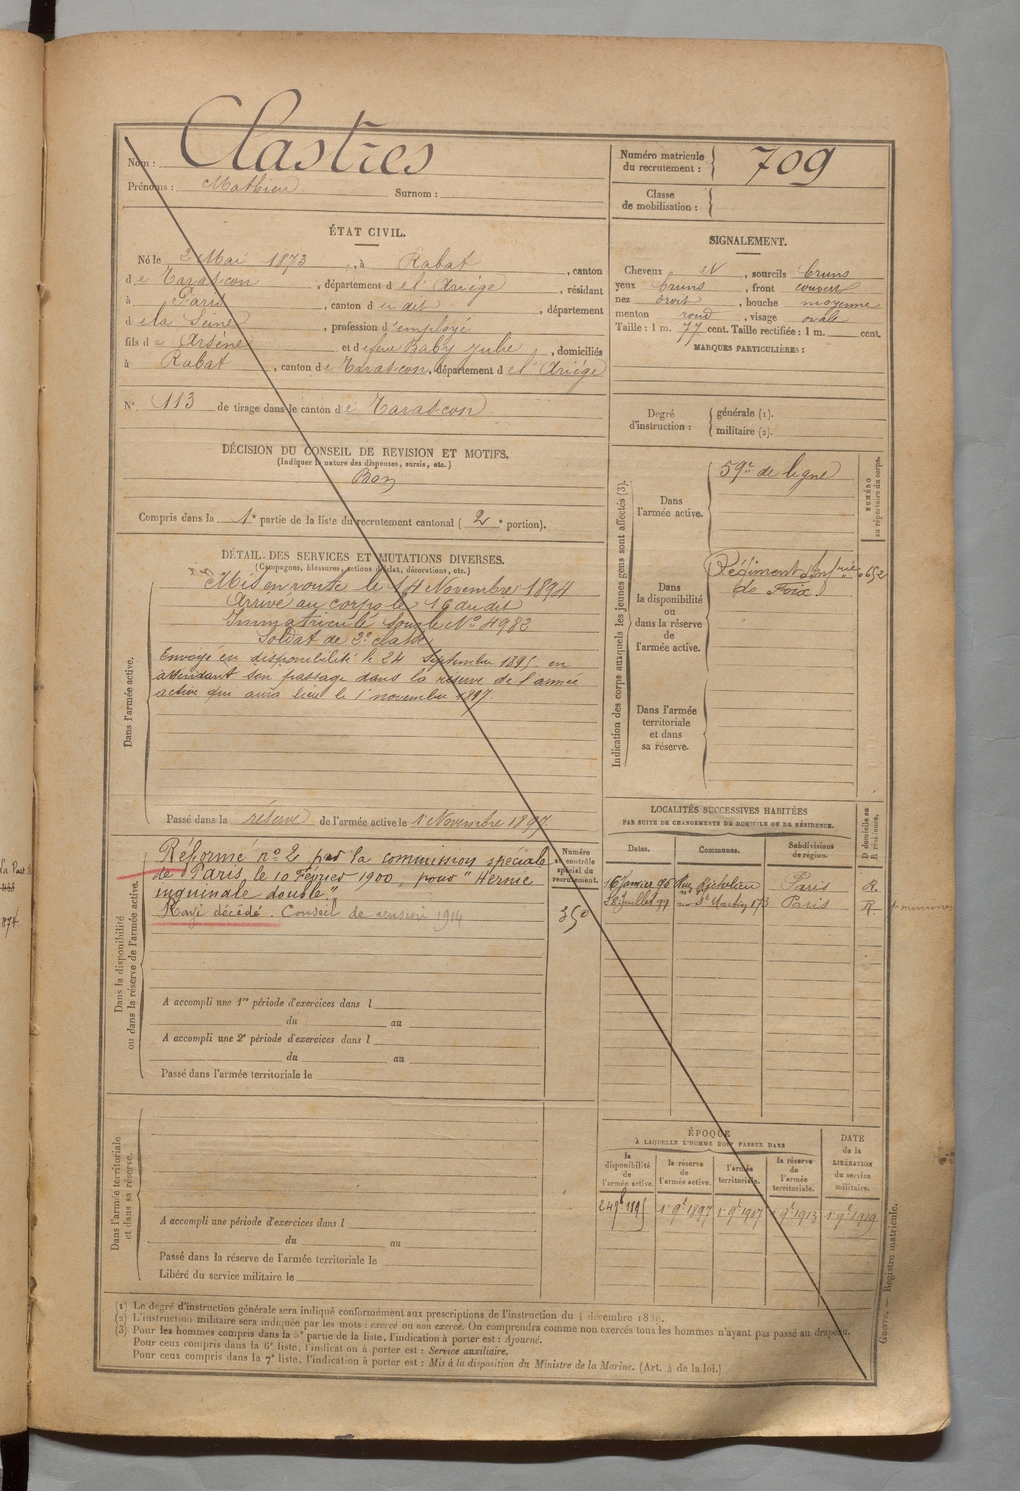 Nom : Clastres
Prénoms : Mathieu Surnom :
Numéro matricule du recrutement : 709
Classe de mobilisation :
ÉTAT CIVIL.
Né le 3 Mai 1873, à Rabat, canton
de Tarascon, département de l'Ariège, résidant
à Paris, canton du dit, département
de la Seine, profession d'employé
fils de Arsène et de feue Baby Julie, domiciliés
à Rabat, canton de Tarascon, département de l'Ariège
N° 113 de tirage dans le canton de Tarascon
SIGNALEMENT.
Cheveux et, sourcils bruns
yeux bruns, front couvert
nez droit, bouche moyenne
menton rond, visage ovale
Taille : 1 m. 77 cent. Taille rectifiée : 1 m. cent.
MARQUES PARTICULIÈRES :
Degré d'instruction : générale (1).
militaire (2).
DÉCISION DU CONSEIL DE REVISION ET MOTIFS.
(Indiquer la nature des dispenses, sursis, etc.)
Bon
Compris dans la 1e partie de la liste du recrutement cantonal (2e portion).
DÉTAIL DES SERVICES ET MUTATIONS DIVERSES.
(Campagnes, blessures, actions d'éclat, décorations, etc.)
Dans l'armée active.
Mis en route le 14 Novembre 1894
Arrivé au corps le 16 du dit
Immatriculé sous le N° 4982
Soldat de 2e classe
Envoyé en disponibilité le 24 Septembre 1895 en
attendant son passage dans la réserve de l'armée
active qui aura lieu le 1 novembre 1897.
Passé dans la réserve de l'armée active le 1 Novembre 1897
Indication des corps auxquels les jeunes gens sont affectés (3).
NUMÉRO au répertoire du corps.
Dans l'armée active.
59e de ligne
Dans la disponibilité ou dans la réserve de l'armée active.
Régiment d'Infrie
de Foix.
0652
Dans l'armée territoriale et dans sa réserve.
Dans la disponibilité ou dans la réserve de l'armée active.
Réformé n° 2 par la commission spéciale
de Paris, le 10 Février 1900, pour "Hernie
inguinale double"
Rayé décédé. Conseil de revision 1914
Numéro au contrôle spécial du recrutement.
350
A accompli une 1re période d'exercices dans l
du au
A accompli une 2e période d'exercices dans l
du au
Passé dans l'armée territoriale le
LOCALITÉS SUCCESSIVES HABITÉES
PAR SUITE DE CHANGEMENTS DE DOMICILE OU DE RÉSIDENCE.
Dates. Communes. Subdivisions de région. D domicile ou R résidence.
16 Janvier 96 Rue Richelieu Paris R.
28 Juillet 99 St Martin 173 Paris R
Dans l'armée territoriale et dans sa réserve.
A accompli une période d'exercices dans l
du au
Passé dans la réserve de l'armée territoriale le
Libéré du service militaire le
ÉPOQUE
À LAQUELLE L'HOMME DOIT PASSER DANS
la disponibilité de l'armée active. la réserve de l'armée active. l'armée territoriale. la réserve de l'armée territoriale. DATE de la LIBÉRATION du service militaire.
24 7b 1895 1 9b 1897 1 9b 1907 1 9b 1913 1 9b 1919
(1) Le degré d'instruction générale sera indiqué conformément aux prescriptions de l'instruction du 4 décembre 1889.
(2) L'instruction militaire sera indiquée par les mots : exercé ou non exercé. On comprendra comme non exercés tous les hommes n'ayant pas passé au drapeau.
(3) Pour les hommes compris dans la 5e partie de la liste, l'indication à porter est : Ajourné.
Pour ceux compris dans la 6e liste, l'indication à porter est : Service auxiliaire.
Pour ceux compris dans la 7e liste, l'indication à porter est : Mis à la disposition du Ministre de la Marine. (Art. 4 de la loi.)
Guerre. — Registre matricule.